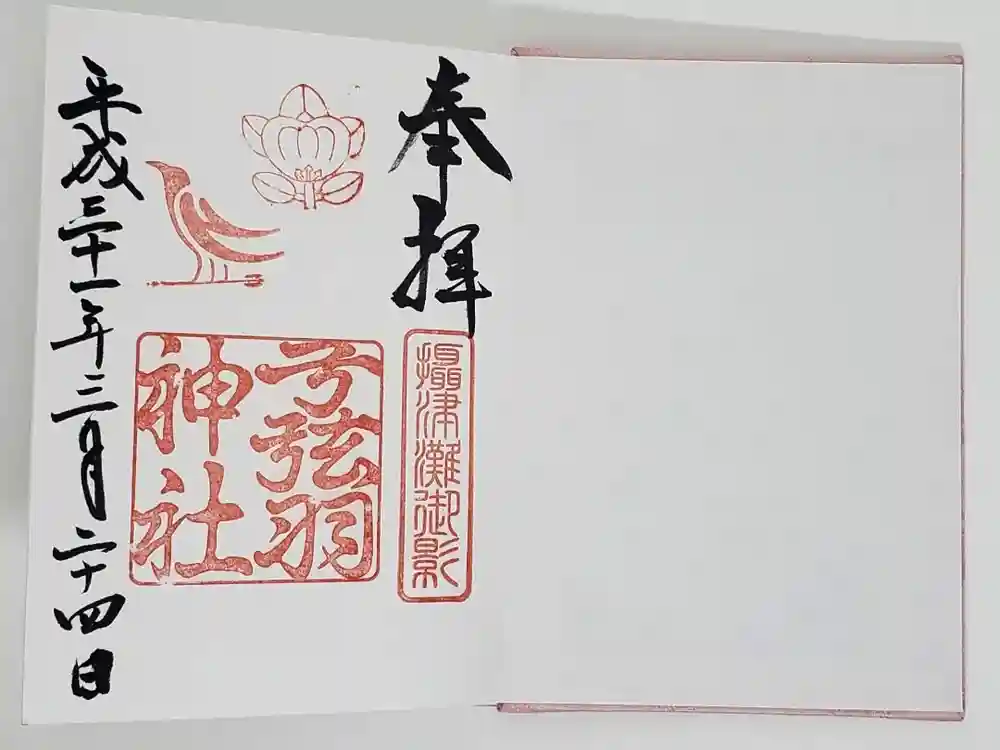 奉拝
攝津灘御影
弓弦羽
神社
平成三十一年三月二十四日